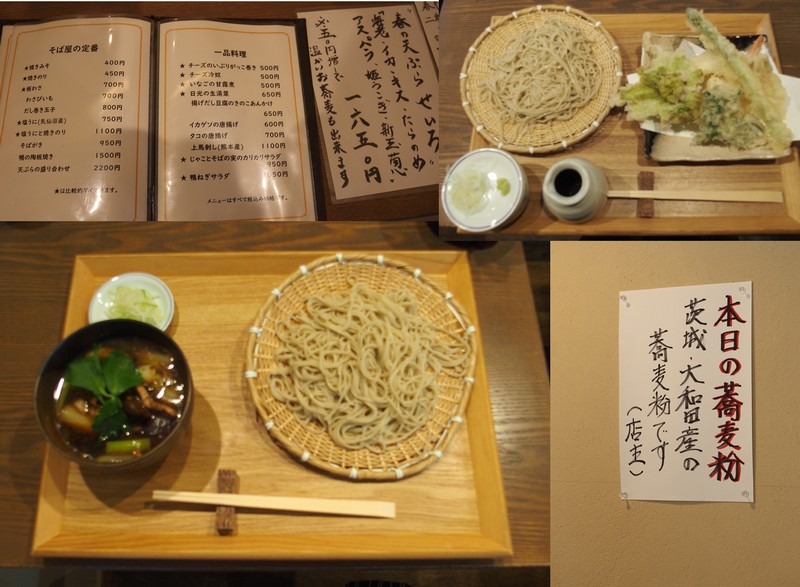 そば屋の定番
★焼きみそ 400円
★焼きのり 450円
★板わさ 700円
わさびいも 700円
だし巻き玉子 800円
★塩うに(礼仙沼産) 750円
★塩うにと焼きのり 1100円
そばがき 950円
鴨の陶板焼き 1500円
天ぷらの盛り合わせ 2200円
★は比較的早くできます。
一品料理
★ チーズのいぶりがっこ巻き 500円
★ チーズ冷奴 500円
★ いなごの甘露煮 500円
★ 日光の生湯葉 650円
揚げだし豆腐のきのこあんかけ
650円
イカゲソの唐揚げ 600円
タコの唐揚げ 700円
上馬刺し(熊本産) 1100円
★ じゃことそばの実のカリカリサラダ
950円
★ 鴨ねぎサラダ
メニューはすべて税込み価格です。
春の天ぷらせいろ
イカ・キス・たらのめ
アスパラ・姫うこぎ・新玉葱
一六五〇円
温かいお蕎麦も出来ます
本日の蕎麦粉
茨城・大和田産の
蕎麦粉です
(店主)